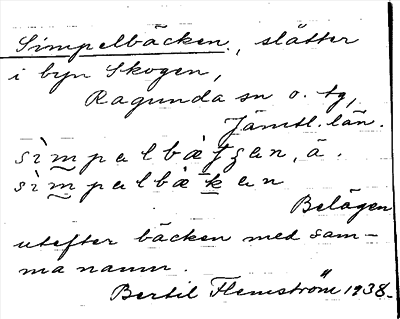 Simpelbäcken., slåtter
i byn Skogen,
Ragunda sn o. tg,
Jämtl. län.
sìmpəlbæ̀ʃʒən, ä.
sìmpəlbæ̀kən
Belägen
utefter bäcken med sam-
ma namn.
Bertil Flemström 1938.